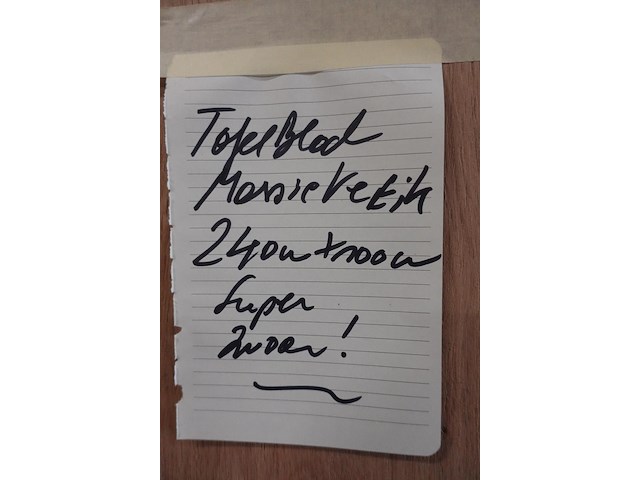 TafelBlad
Massieve Eik
240cm x 100cm
Super
Zwaar!